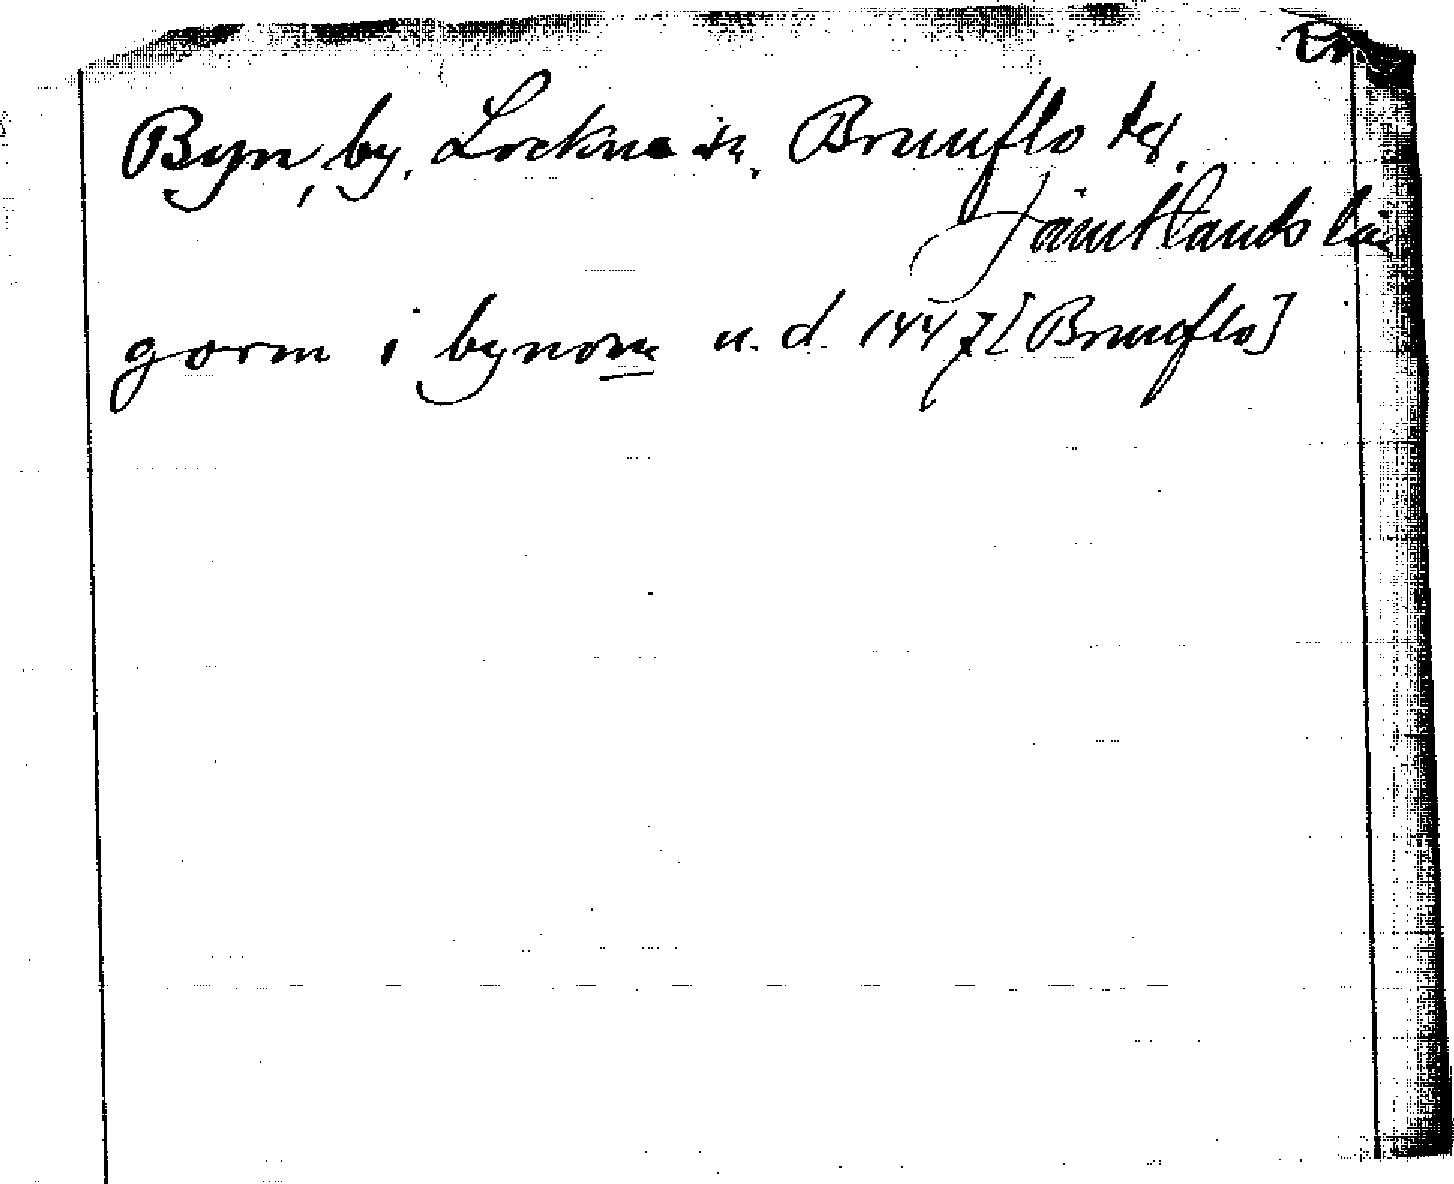 Byn, by, Lockne sn, Brunflo tg.
Jämtlands län
gorm i bynom u. d. 1447 [Brunflo]